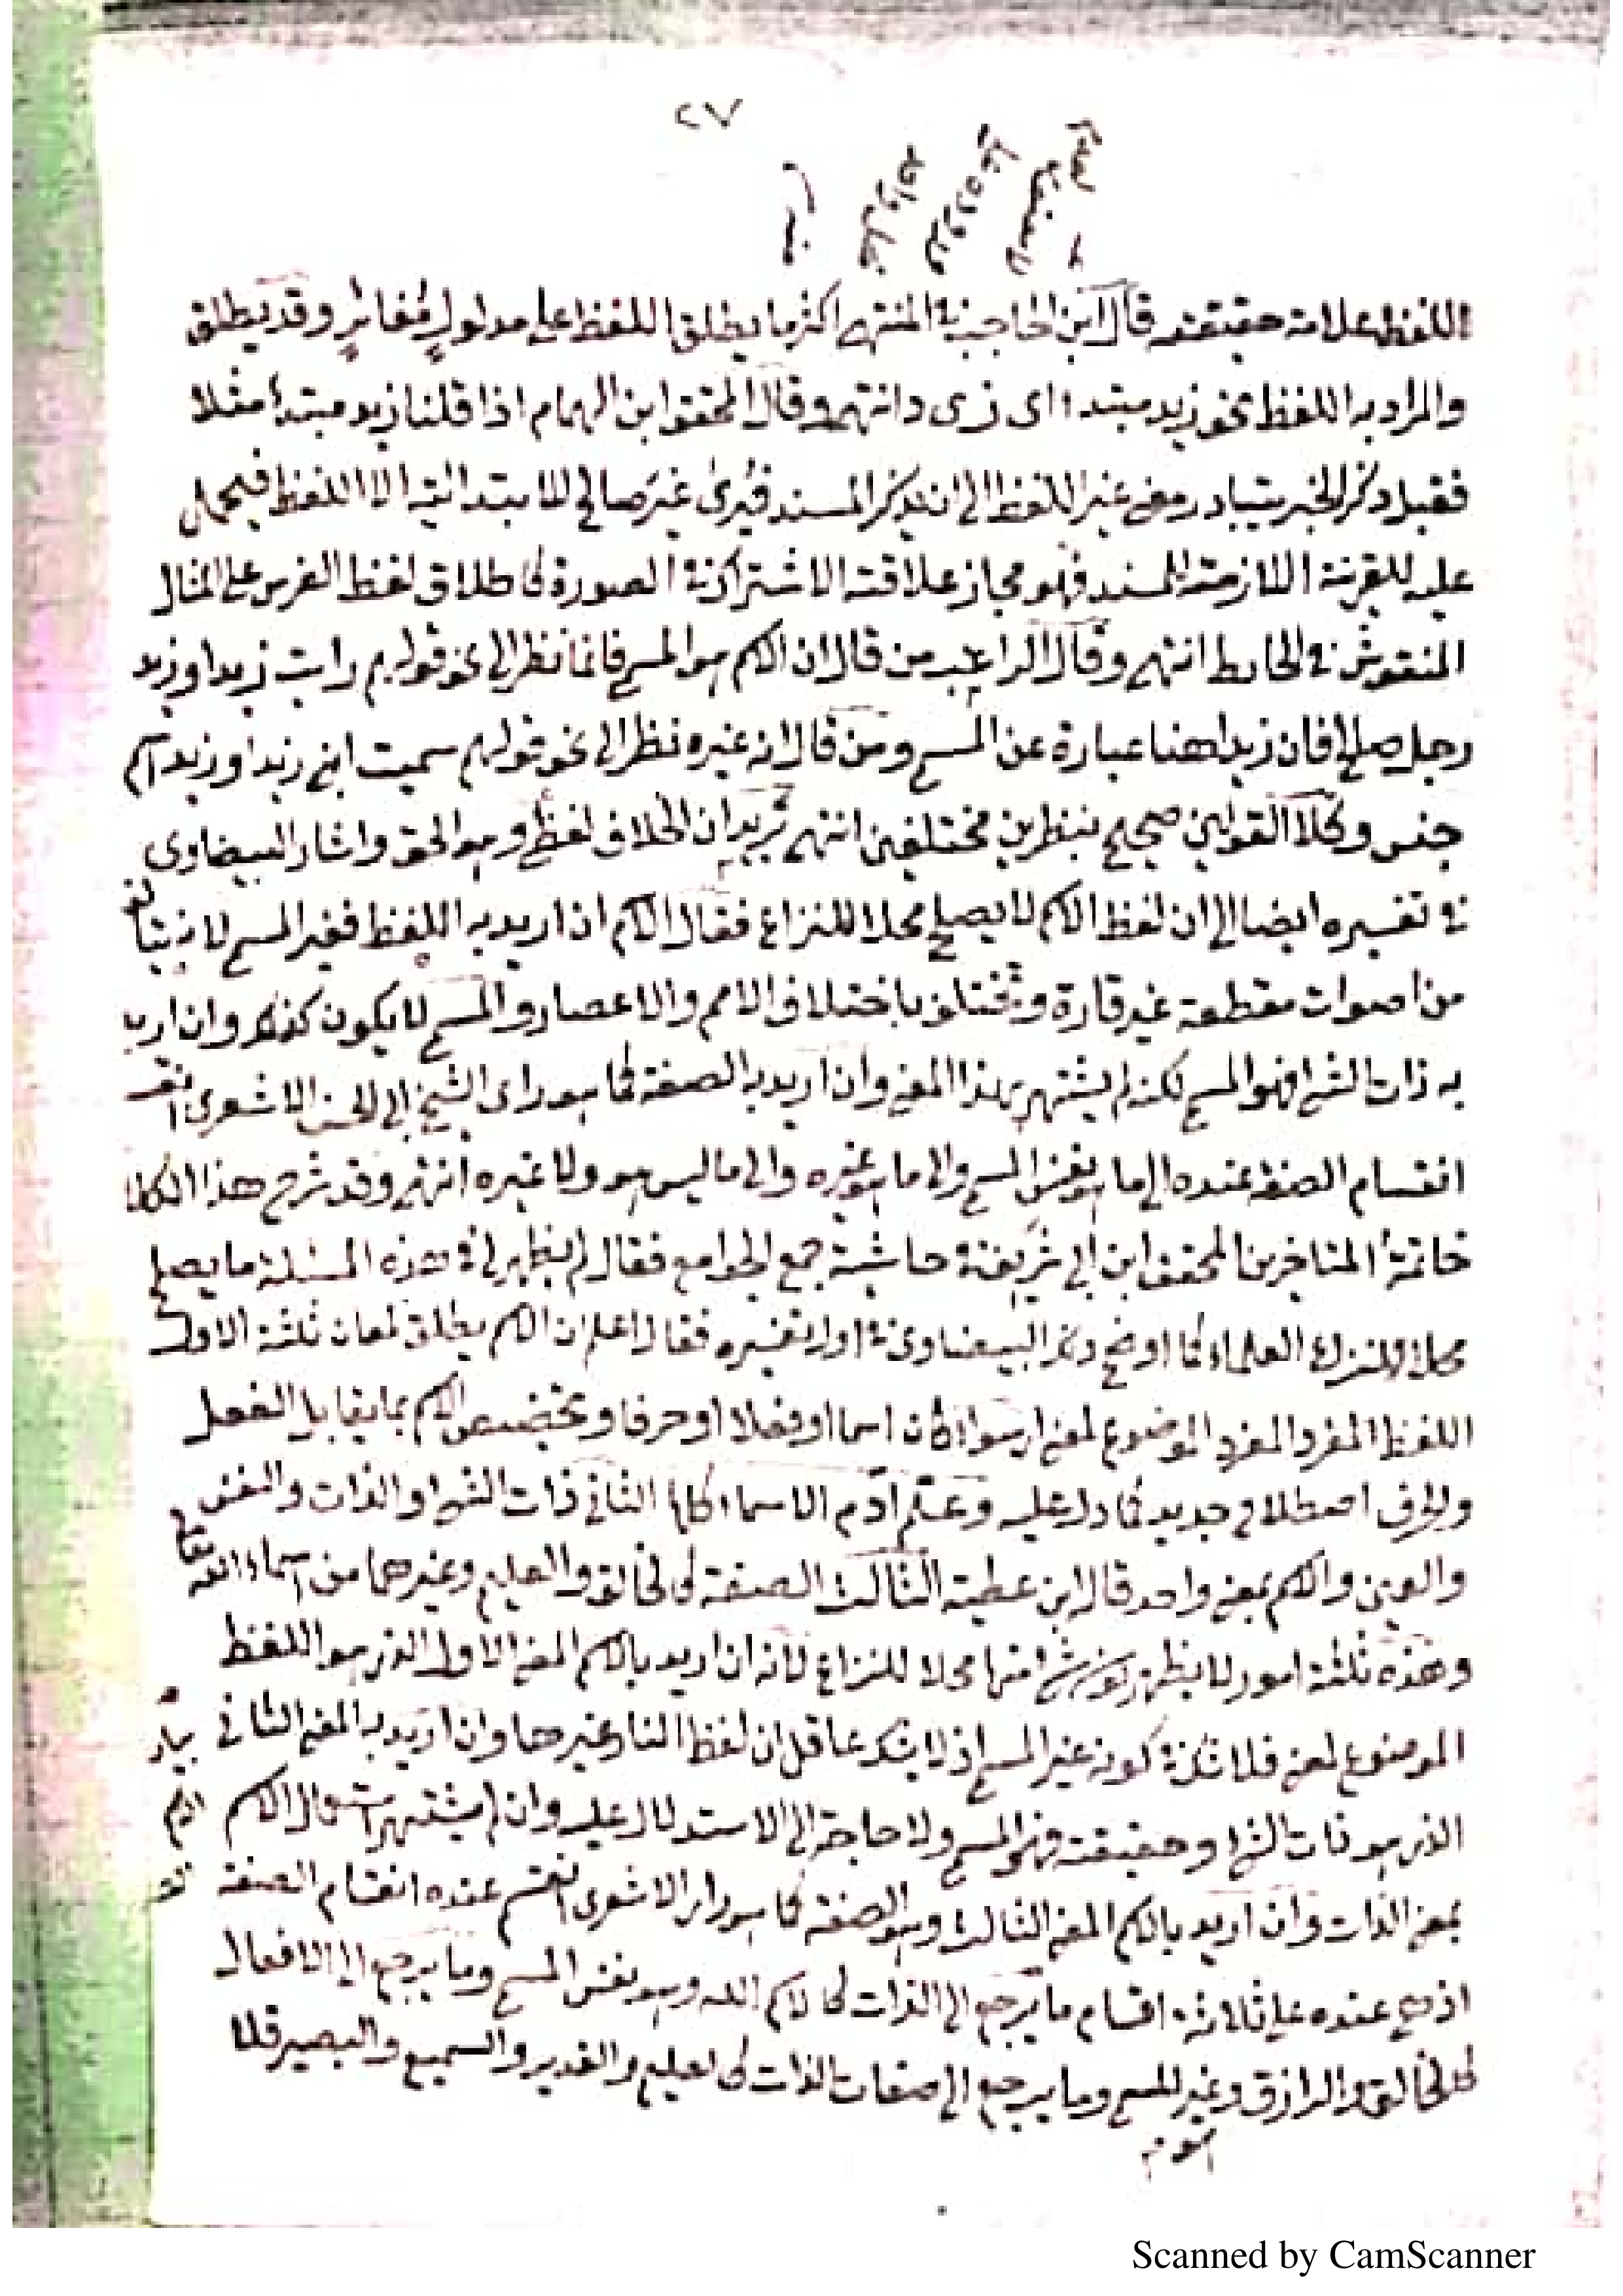 ٢٧
اللفظ علامة حقيقته قال ابن الحاجب في المنتهى اكثر ما يطلق اللفظ على مدلولٍ مُغائرٍ وقد يطلق
والمراد به اللفظ نحو زيد مبتداء اى زى د انتهى وقال المحقق ابن الهمام اذا قلنا زيد مبتدأ مثلا
فقبل ذكر الخبر يتبادر معنى غير اللفظ الى ان يذكر المسند فيُرى غيرَ صالح للابتدائية الا اللفظ فيحمل
عليه للقرينة اللازمة المسند فهو مجاز علاقته الاشتراك في الصورة كاطلاق لفظ الفرس على المثال
المنقوش في الحايط انتهى وقال الراغب من قال ان الاسم هو المسمى فانما نظر الى نحو قولهم رايت زيدا وزيد
رجل صالح فان زيدا هنا عبارة عن المسمى ومن قال انه غيره نظر الى نحو قولهم سميت ابني زيدا وزيد اسم
جنس وكلا القولين صحيح بنظرين مختلفين انتهى يُريد ان الخلاف لفظي وهو الحق واشار البيضاوى
في تفسيره ايضا الى ان لفظ الاسم لا يصلح محلا للنزاع فقال الاسم اذا اريد به اللفظ فغير المسمى لانه يتألف
من اصوات مقطعة غير قارة وتختلف باختلاف الامم والاعصار والمسمى لا يكون كذلك وان اريد
به ذات الشئ فهو المسمى لكنه لم يشتهر بهذا المعنى وان اريد به الصفة كما هو راى الشيخ ابى الحسن الاشعرى انقسم
انقسام الصفة عنده الى ما هو نفس المسمى والى ما هو غيره والى ما ليس هو ولا غيره انتهى وقد شرح هذا الكلام
خاتمة المتاخرين المحقق ابن ابى شريف في حاشية جمع الجوامع فقال لم يظهر لى في هذه المسئلة ما يصلح
محلا لنزاع العلماء كما اوضح ذلك البيضاوى في اول تفسيره فقال اعلم ان الاسم يطلق لمعان ثلثة الاول
اللفظ المفرد المفرد الموضوع لمعنى سواء كان اسما او فعلا او حرفا وتخصيص الاسم بما يقابل الفعل
والحرف اصطلاح جديد كما دل عليه وعلّم آدم الاسماء كلها الثانى ذات الشئ او الذات والنفس
والعين والاسم بمعنى واحد قال ابن عطية الثالث الصفة كالخالق والعليم وغيرهما من اسماء الله تعالى
وهذه ثلثة امور لا يظهر كون شئ منها محلا للنزاع لانه ان اريد بالاسم المعنى الاول الذى هو اللفظ
الموضوع لمعنى فلا شك في كونه غير المسمى اذ لا يشك عاقل ان لفظ النار غيرها وان اريد به المعنى الثانى
الذى هو ذات الشئ وحقيقته فهو المسمى ولا حاجة الى الاستدلال عليه وان لم يشتهر استعمال الاسم
بمعنى الذات وان اريد بالاسم المعنى الثالث وهو الصفة كما هو راى الاشعرى انقسم عنده انقسام الصفة
اذ هى عنده على ثلاثة اقسام ما يرجع الى الذات كالاسم الله وهو نفس المسمى وما يرجع الى الافعال
كالخالق والرازق وغير المسمى وما يرجع الى صفات الذات كالعليم والقدير والسميع والبصير فلا
Scanned by CamScanner